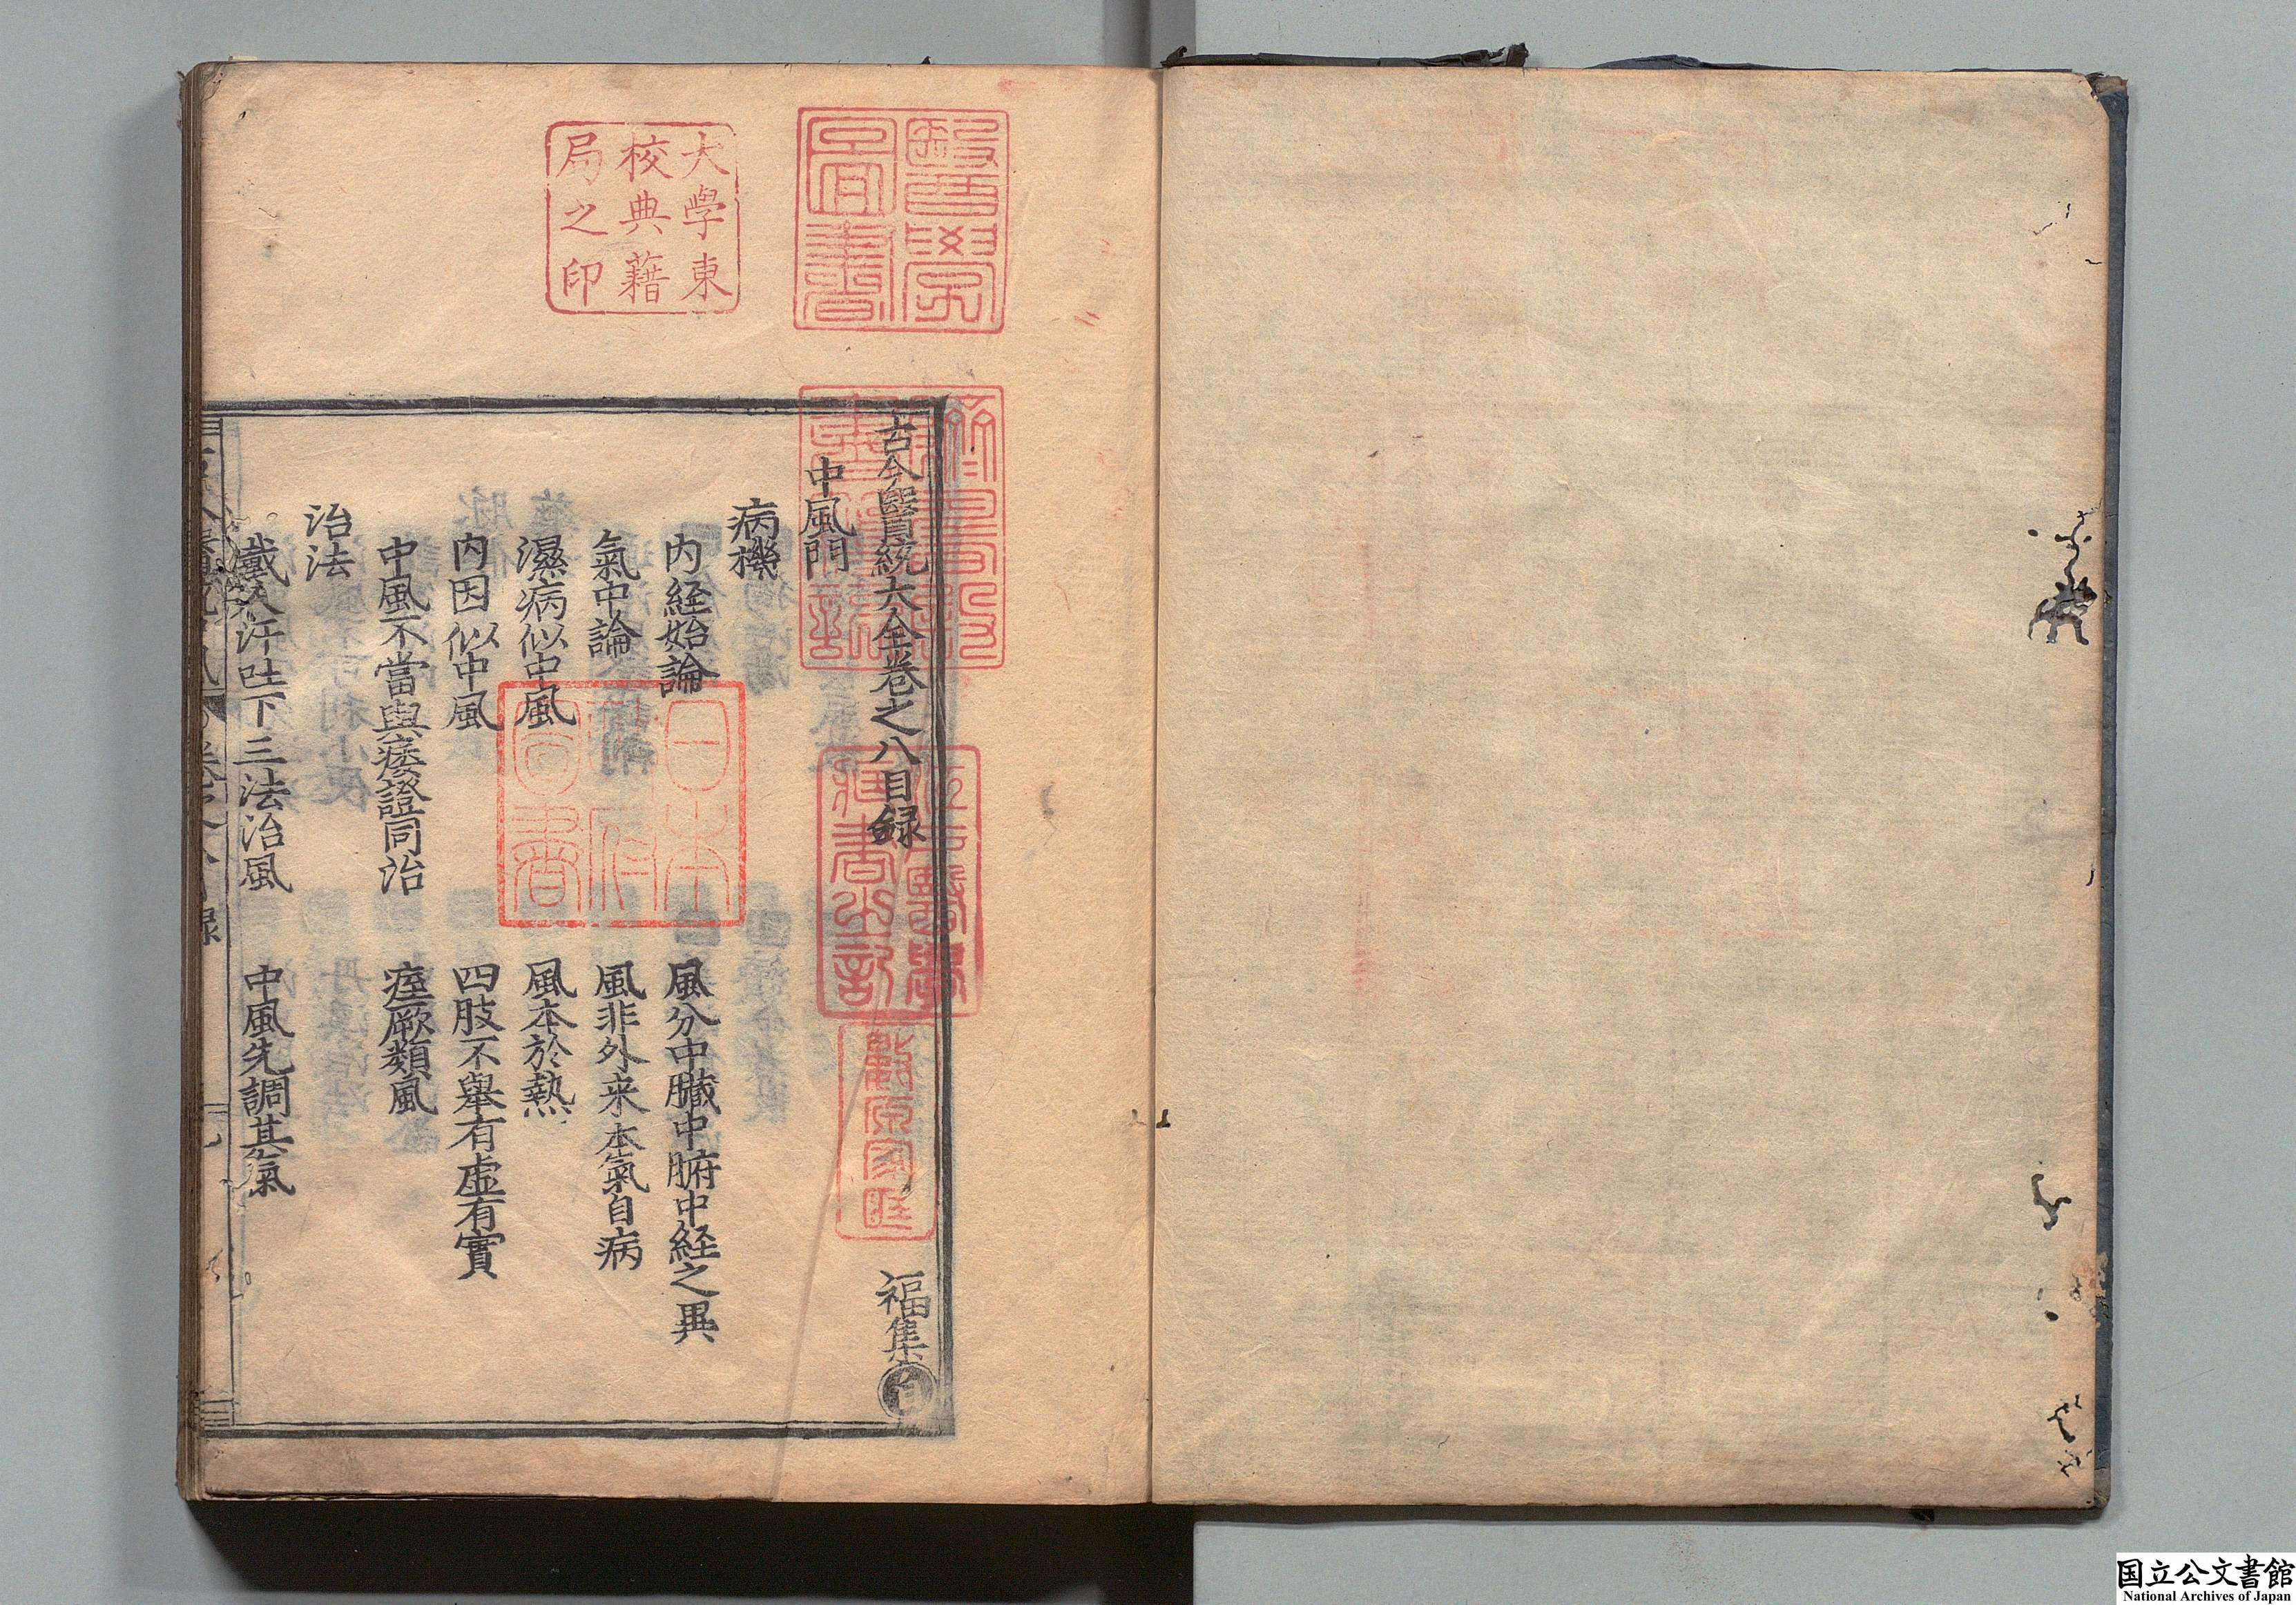 古今醫統大全卷之八目録
福集
中風門
病機
内経始論
風分中臟中腑中経之異
氣中論
風非外来本氣自病
濕病似中風
風本於熱
内因似中風
四肢不舉有虚有實
中風不當與痿證同治
痓厥類風
治法
戴人汗吐下三法治風
中風先調其氣
醫學圖書
大學東
校典藉
局之印
日本
政府
圖書
江戸醫學
藏書之記
国立公文書館
National Archives of Japan